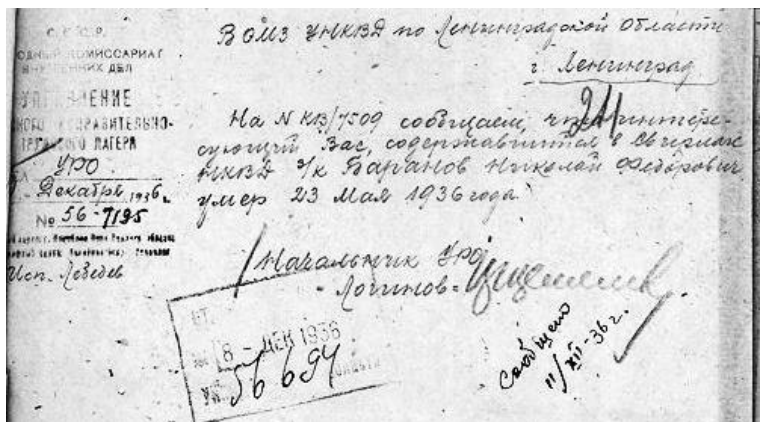 С.С.С.Р.
КОМИССАРИАТ
ВНУТРЕННИХ ДЕЛ
УПРАВЛЕНИЕ
ИСПРАВИТЕЛЬНО-
ЛАГЕРЯ
УРО
Декабря 1936 г.
№ 56-7195
Исп. Лебедев
В ОМЗ УНКВД по Ленинградской Области
г. Ленинград
На N КВ/7509 сообщаем, что интере-
сующий Вас, содержавшийся в Свирлаг
НКВД з/к Баранов Николай Федорович
умер 23 Мая 1936 года.
Начальник УРО
- Логинов -
8 - ДЕК 1936
56694
Сообщено
11/XII-36 г.